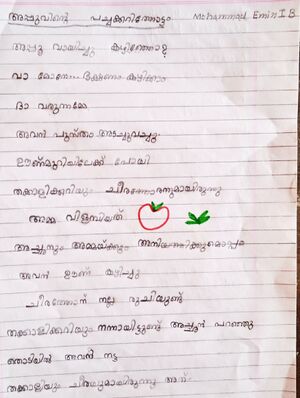 അപ്പുവിന്റെ പച്ചക്കറിത്തോട്ടം Mohammad Emin I B
അപ്പൂ വായിച്ചു കഴിഞ്ഞോളൂ
വാ മോനേ... ഭക്ഷണം കഴിക്കാം
ദാ വരുന്നമ്മേ
അവൻ പുസ്തകം അടച്ചുവച്ചു
ഊൺമുറിയിലേക്ക് പോയി
തക്കാളിക്കറിയും ചീരത്തോരനുമായിരുന്നു
അമ്മ വിളമ്പിയത്
അച്ഛനും അമ്മയ്ക്കും അനിയത്തിക്കുമൊപ്പം
അവൻ ഊണ് കഴിച്ചു
ചീരത്തോരന് നല്ല രുചിയുണ്ട്
തക്കാളിക്കറിയും നന്നായിട്ടുണ്ട് അച്ഛൻ പറഞ്ഞു
തൊടിയിൽ അവൻ നട്ട
തക്കാളിയും ചീരയുമായിരുന്നു അത്